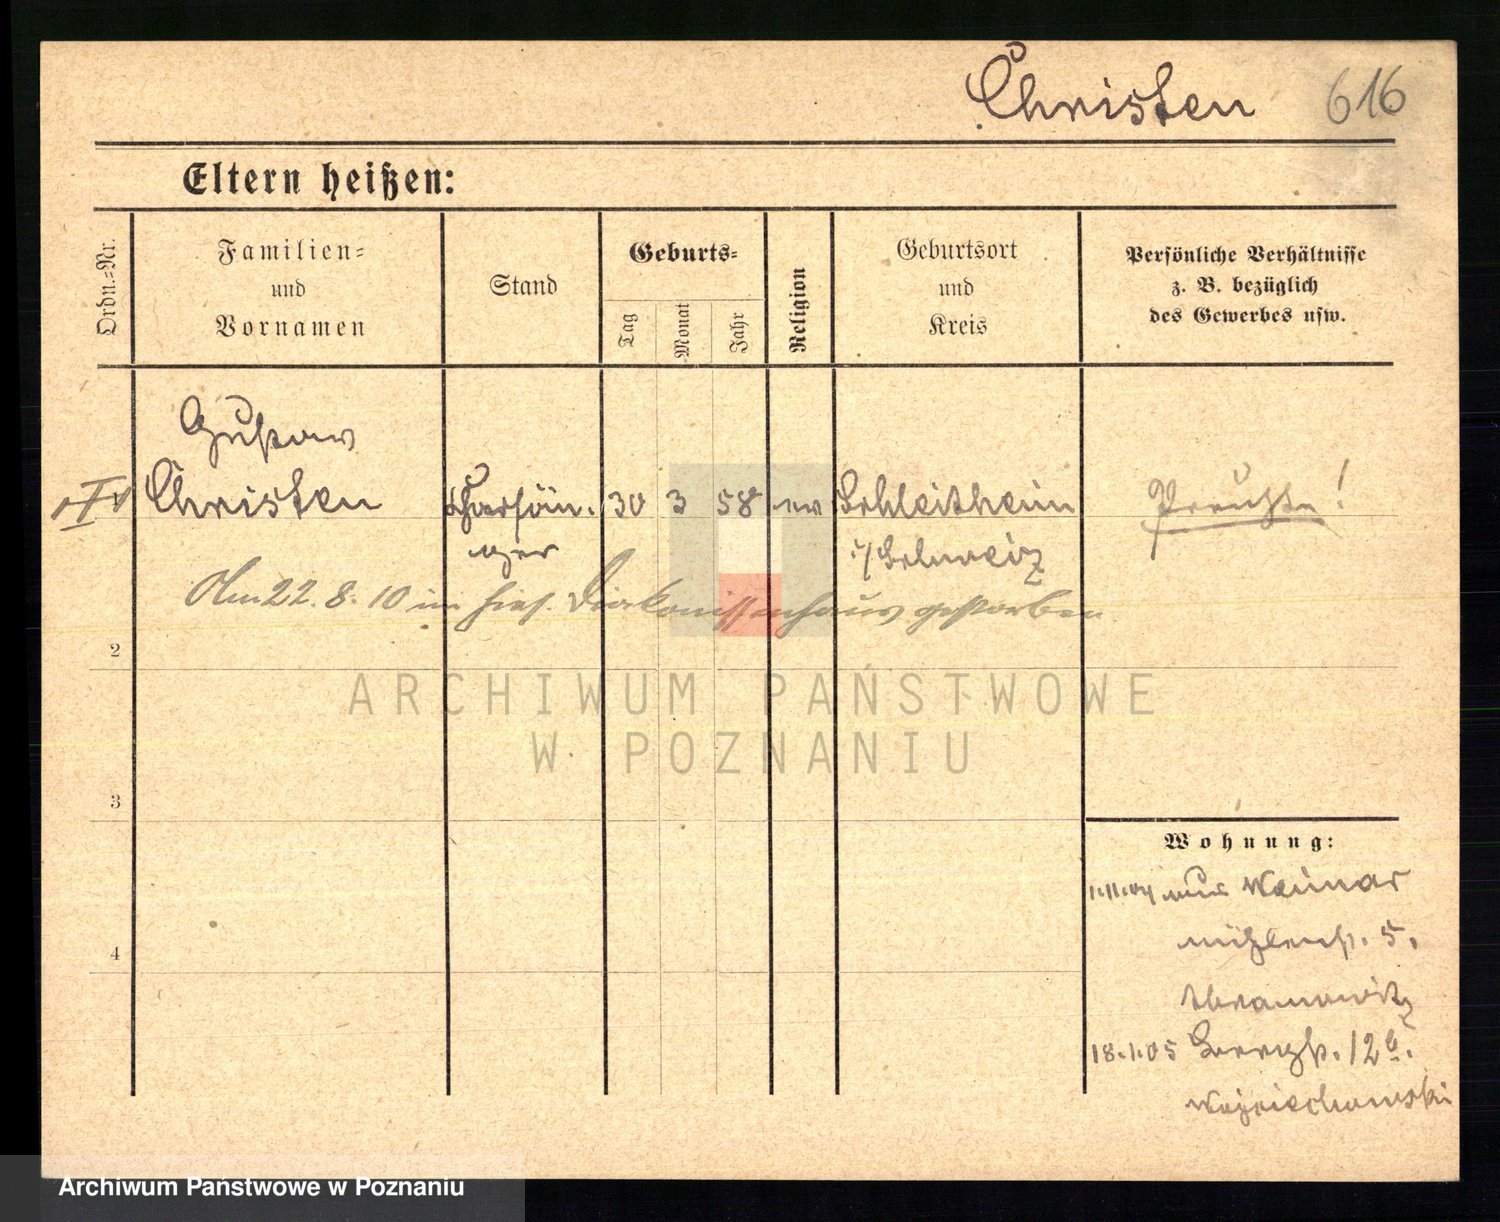 Christen 616
Eltern heißen:
Ordn.-Nr.
Familien-
und
Vornamen
Stand
Geburts-
Tag
Monat
Jahr
Religion
Geburtsort
und
Kreis
Persönliche Verhältnisse
z. B. bezüglich
des Gewerbes usw.
Gustav
Christen
30 3 58 ev Schleitheim
ger
i/Schweiz
Preuße!
Am 22. 8. 10 im hies. Diakonissenhaus gestorben
2
3
4
Wohnung:
1.11.04 aus Weimar
Mühlenstr. 5.
Abramowitz
18.1.05 Bergstr. 12b.
Wojciechowski
ARCHIWUM PAŃSTWOWE
W POZNANIU
Archiwum Państwowe w Poznaniu